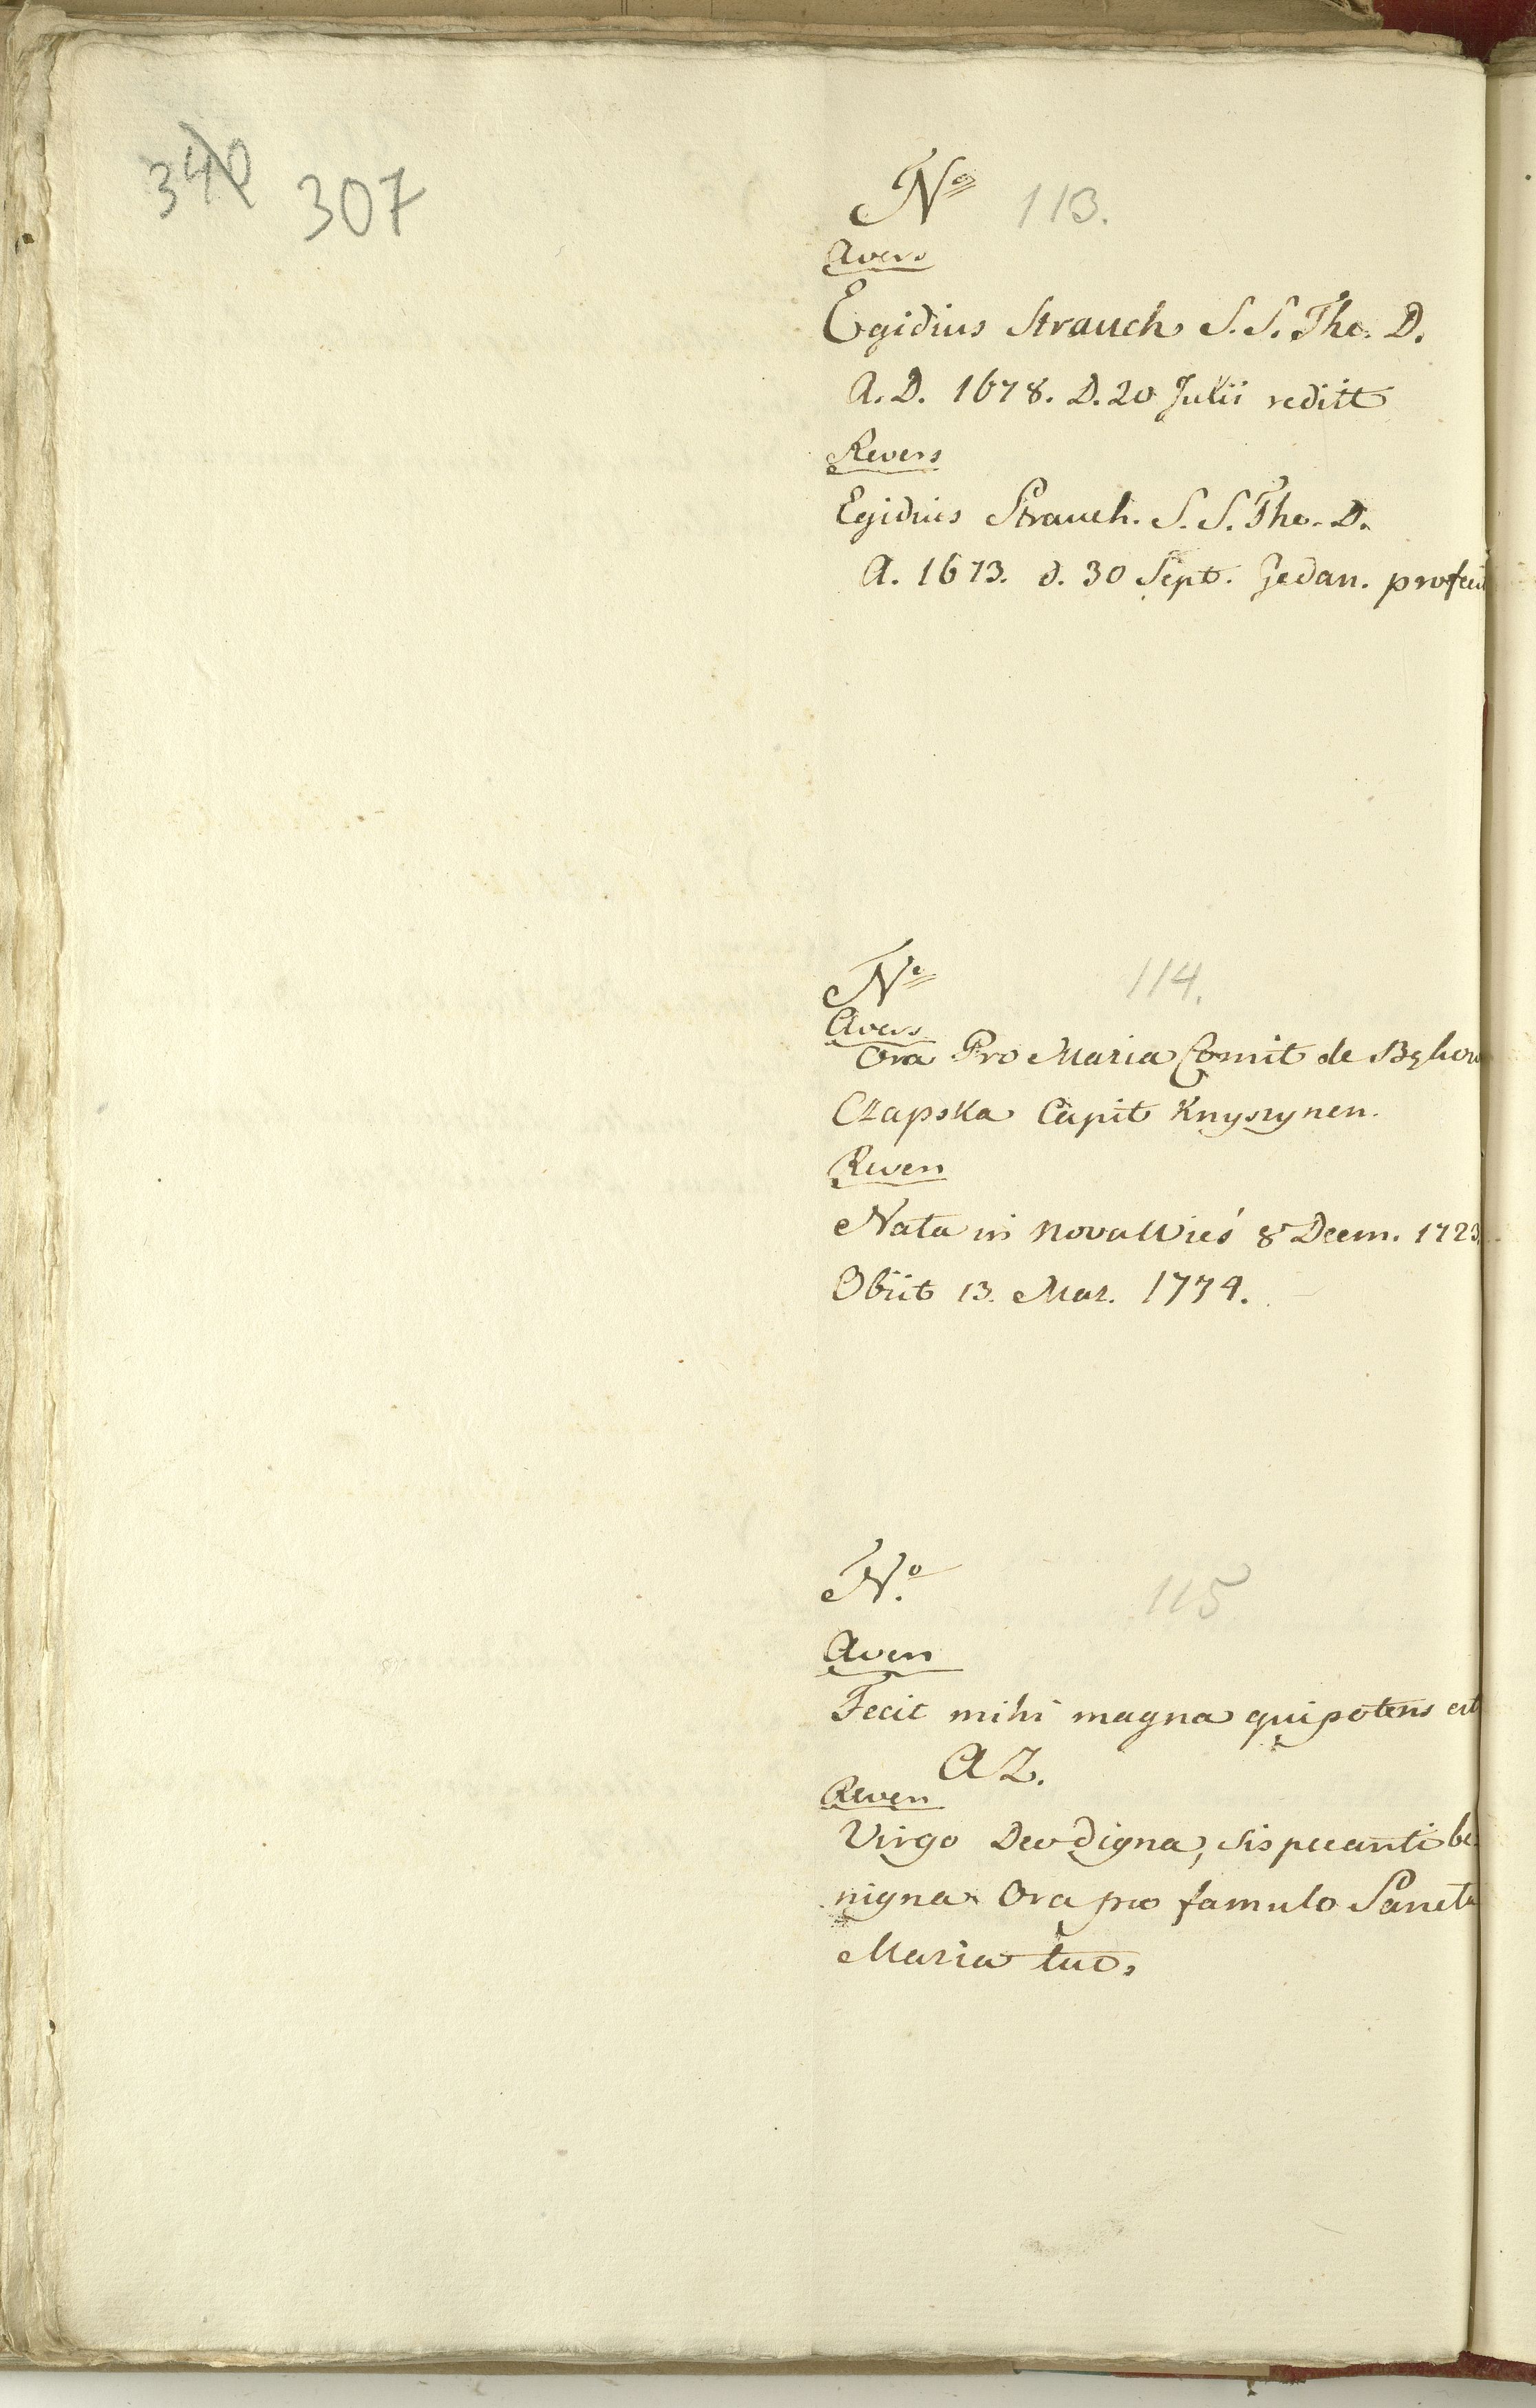 340 307
Nº 113.
Avers
Egidius Strauch S. S. Tho. D.
A. D. 1678. D. 20 Julii reditt
Revers
Egidius Strauch. S. S. Tho. D.
A. 1673. d. 30 Sept. Gedan. profect
Nº 114.
Avers
Ora Pro Maria Comit de
Czapska Capit Knyszynen.
Revers
Nata in Nova Wieś 8 Decem. 1723.
Obiit 13. Mar. 1774.
Nº 115
Avers
Fecit mihi magna qui potens est
A Z.
Revers
Virgo Deo digna, sis peccanti be
nigna Ora pro famulo Sancta
Maria tuo,